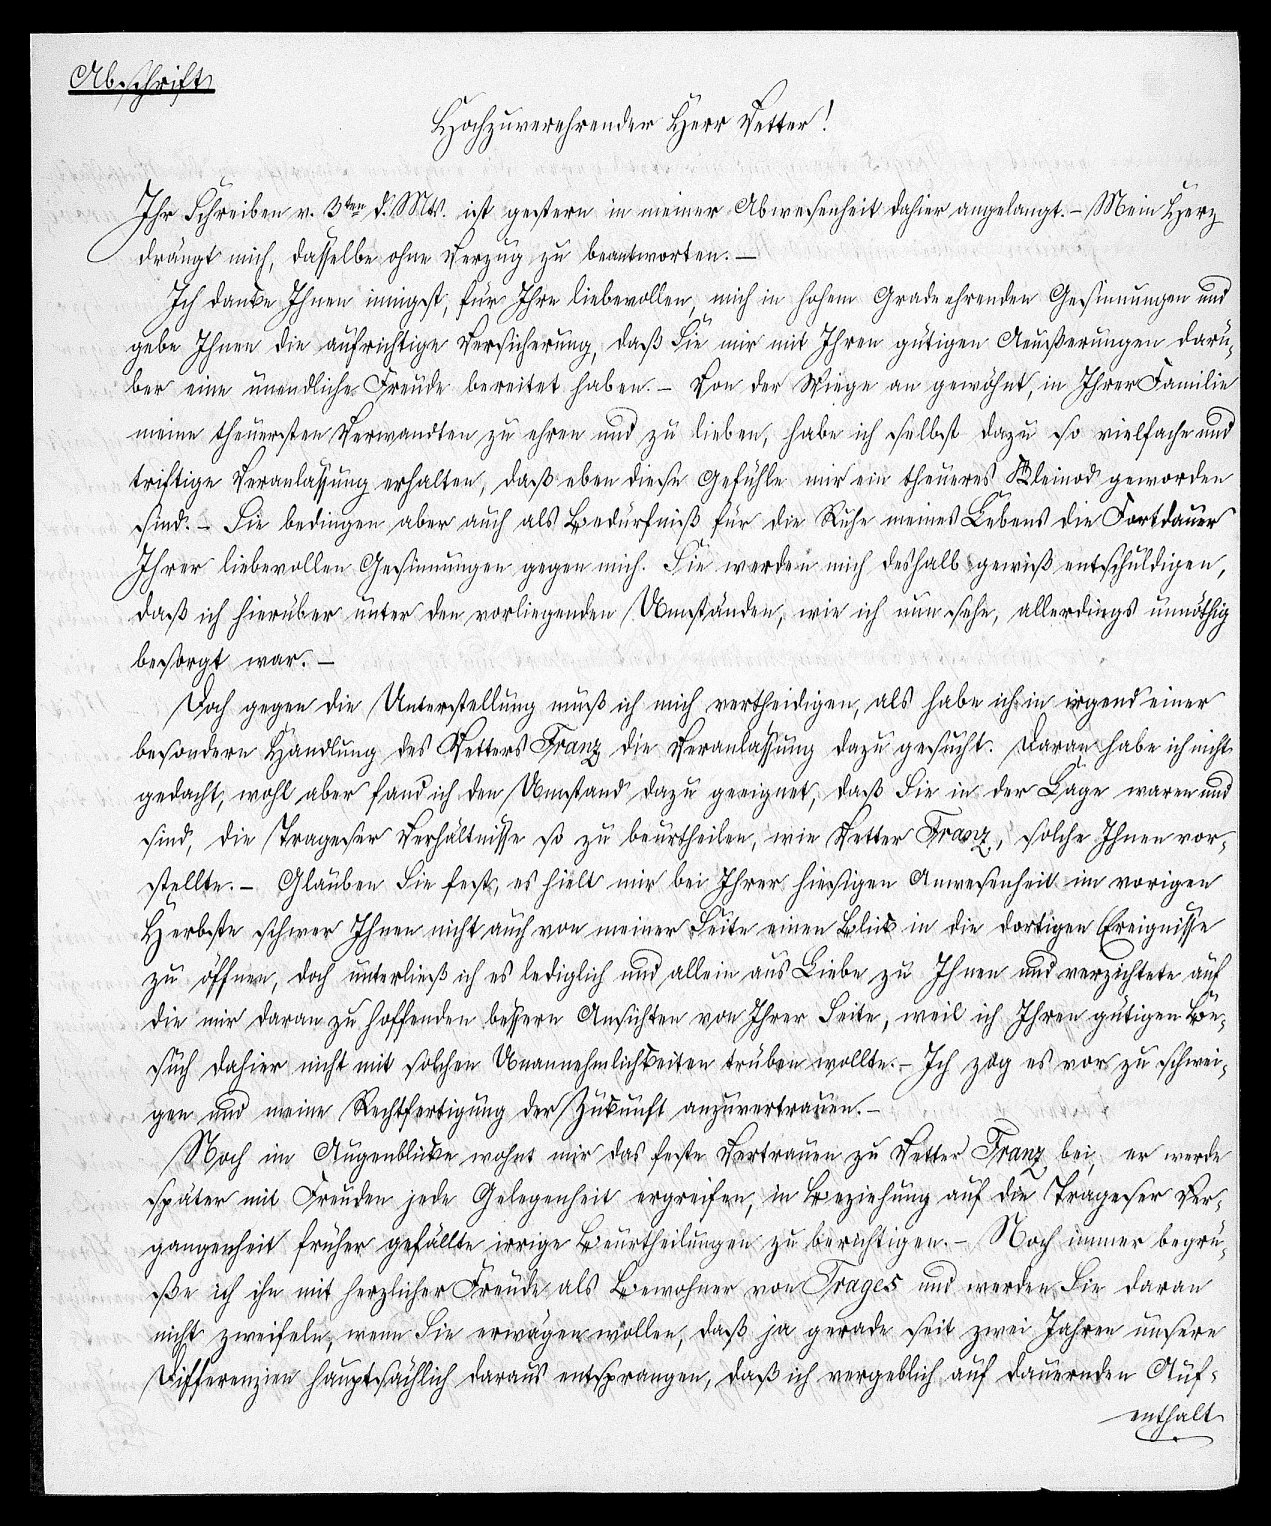 Abschrift
Hochzuverehrender Herr Vetter!
Ihr Schreiben v. 3ten d. Mts. ist gestern in meiner Abwesenheit dahier angelangt. – Mein Herz
drängt mich, dasselbe ohne Verzug zu beantworten. –
Ich danke Ihnen innigst, für Ihre liebevollen, mich in hohem Grade ehrenden Gesinnungen und
gebe Ihnen die aufrichtige Versicherung, daß Sie mir mit Ihren gütigen Äußerungen darü-
ber eine unendliche Freude bereitet haben. – Von der Wiege an gewöhnt, in Ihrer Familie
meine theuersten Verwandten zu ehren und zu lieben, habe ich selbst dazu so vielfache und
triftige Veranlassung erhalten, daß eben diese Gefühle mir ein theueres Kleinod geworden
sind. – Sie bedingen aber auch als Bedürfniß für die Ruhe meines Lebens die Fortdauer
Ihrer liebevollen Gesinnungen gegen mich. Sie werden mich deshalb gewiß entschuldigen,
daß ich hierüber unter den vorliegenden Umständen, wie ich nun sehe, allerdings unnöthig
besorgt war. –
Doch gegen die Unterstellung muß ich mich vertheidigen, als habe ich in irgend einer
besondern Handlung des Vetters Franz die Veranlassung dazu gesucht. Daran habe ich nicht
gedacht, wohl aber fand ich den Umstand dazu geeignet, daß Sie in der Lage waren und
sind, die Trageser Verhältnisse so zu beurtheilen, wie Vetter Franz, solche Ihnen vor-
stellte. – Glauben Sie fest, es hielt mir bei Ihrer hiesigen Anwesenheit im vorigen
Herbste schwer Ihnen nicht auch von meiner Seite einen Blick in die dortigen Ereignisse
zu öffnen, doch unterließ ich es lediglich und allein aus Liebe zu Ihnen und verzichtete auf
die mir daran zu hoffenden bessern Ansichten von Ihrer Seite, weil ich Ihren gütigen Be-
such dahier nicht mit solchen Unannehmlichkeiten trüben wollte. – Ich zog es vor zu schwei-
gen und meine Rechtfertigung der Zukunft anzuvertrauen. –
Noch im Augenblicke wohnt mir das feste Vertrauen zu Vetter Franz bei, er werde
später mit Freuden jede Gelegenheit ergreifen, in Beziehung auf die Trageser Ver-
gangenheit früher gefällte irrige Beurtheilungen zu berichtigen. – Noch immer begrü-
ße ich ihn mit herzlicher Freude als Bewohner von Trages und werden Sie daran
nicht zweifeln, wenn Sie erwägen wollen, daß ja gerade seit zwei Jahren unsere
Differenzien hauptsächlich daraus entsprangen, daß ich vergeblich auf dauernden Auf-
enthalt